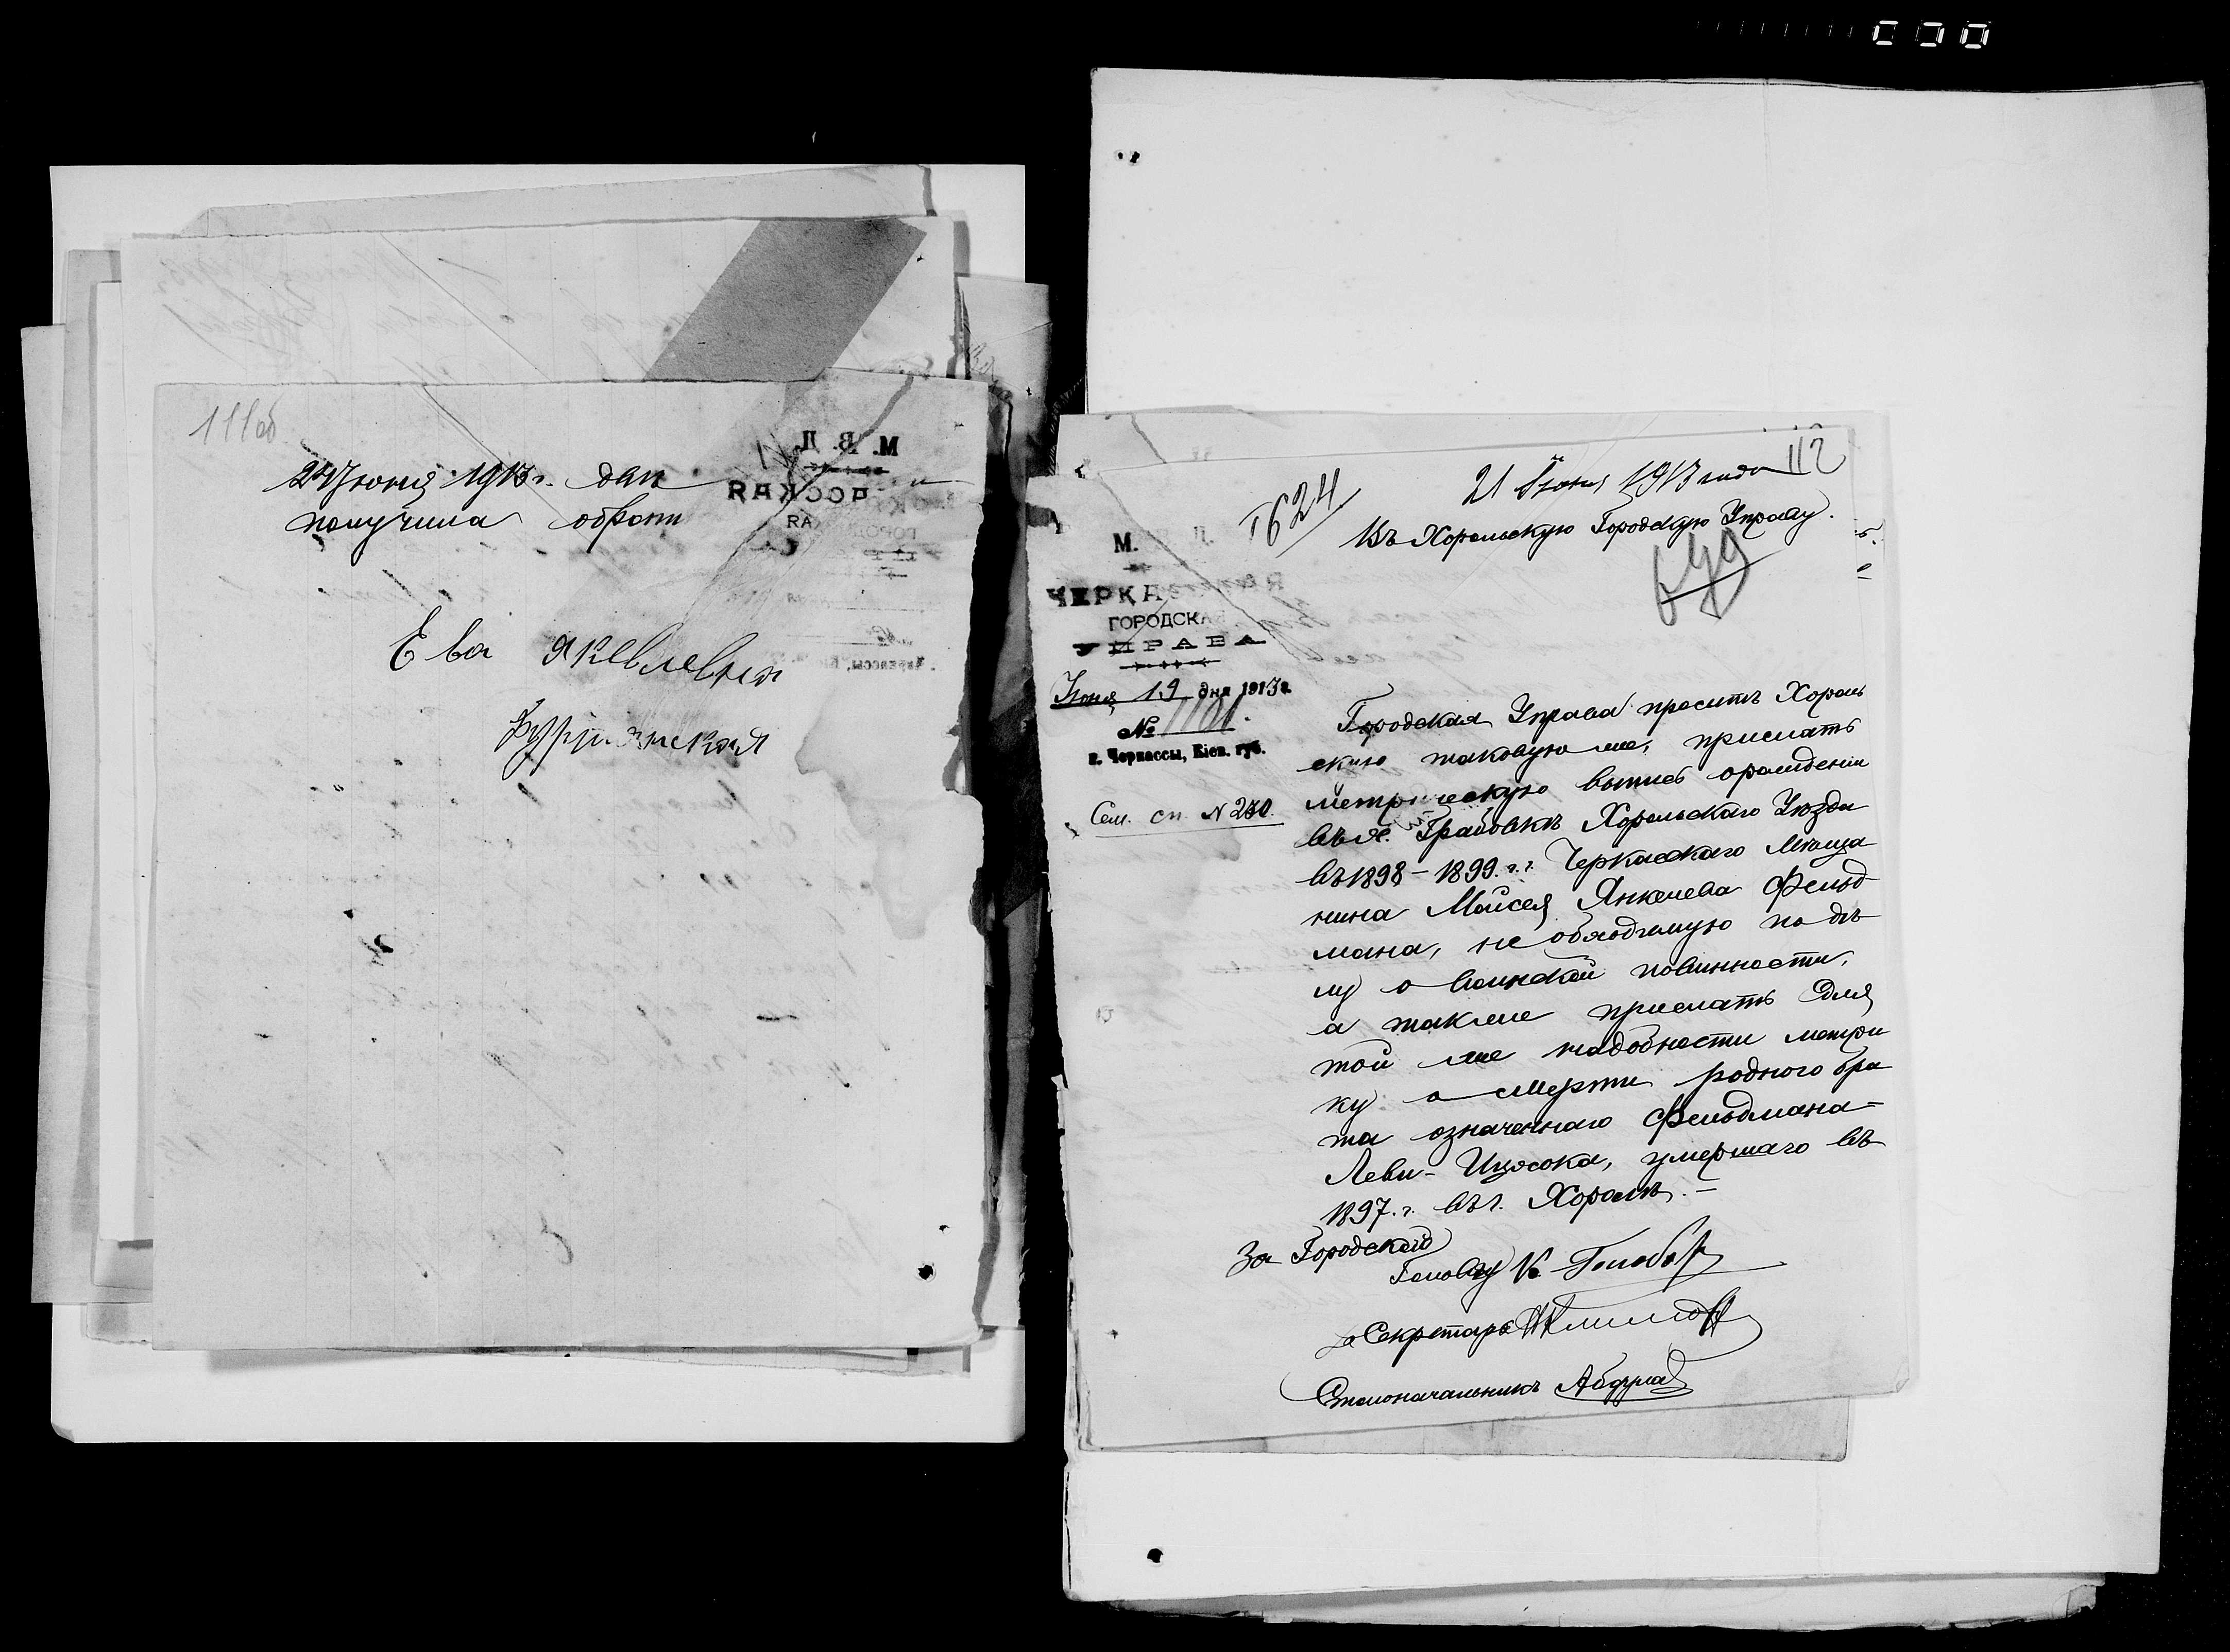 111об
24 Июня 1913 г.
получила обратно
Ева Яковлевна
112
21 Июня 1913 года
1624
Въ Хорольскую Городскую Управу.
699
М. Д.
ЧЕРКАС
ГОРОДСКАЯ
УПРАВА
Июня 19 дня 1913 г.
№
г. Черкассы, Кіев. губ.
Сем. сп. N 230.
Городская Управа проситъ Хороль
скую таковую же, прислать
метрическую выпись о рожденіи
въ м. Хорольскаго Уѣзда
въ 1898-1899 г.г. Черкасскаго мѣща
нина Мойсея Янкелева Фельд
мана, необходимую по дѣ
лу о воинской повинности,
а также прислать для
той же надобности метри
ку о смерти родного бра
та означеннаго Фельдмана-
Леви-Ицхока, умершаго въ
1897 г. въ г. Хоролѣ.-
За Городской
Голову К.
Секретарь
Столоначальникъ